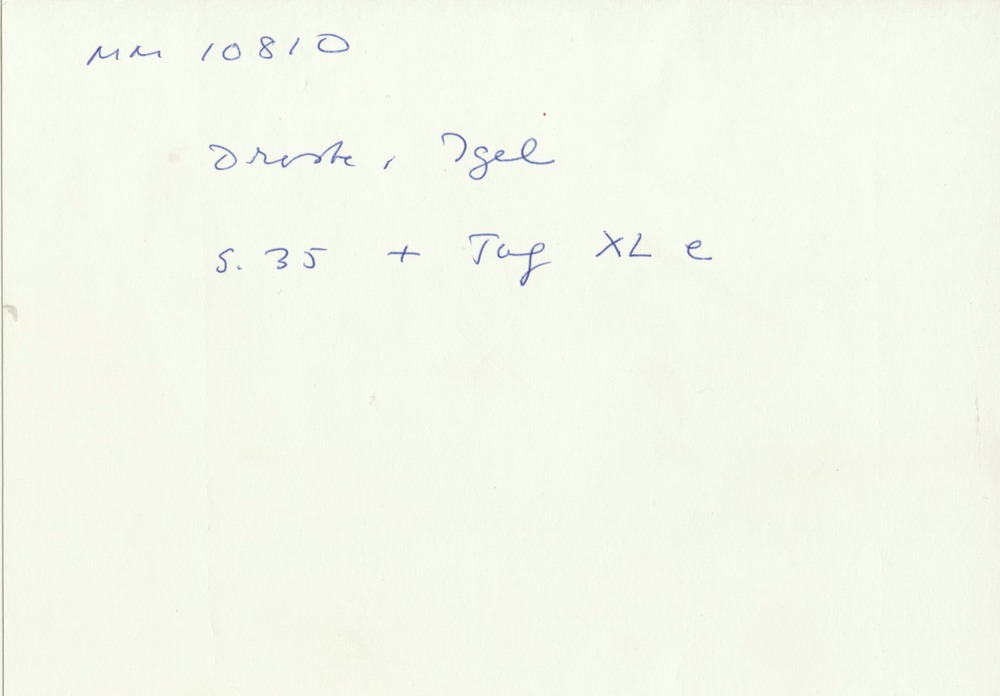 MM 10810
Droste, Igel
S. 35 + Taf XL e